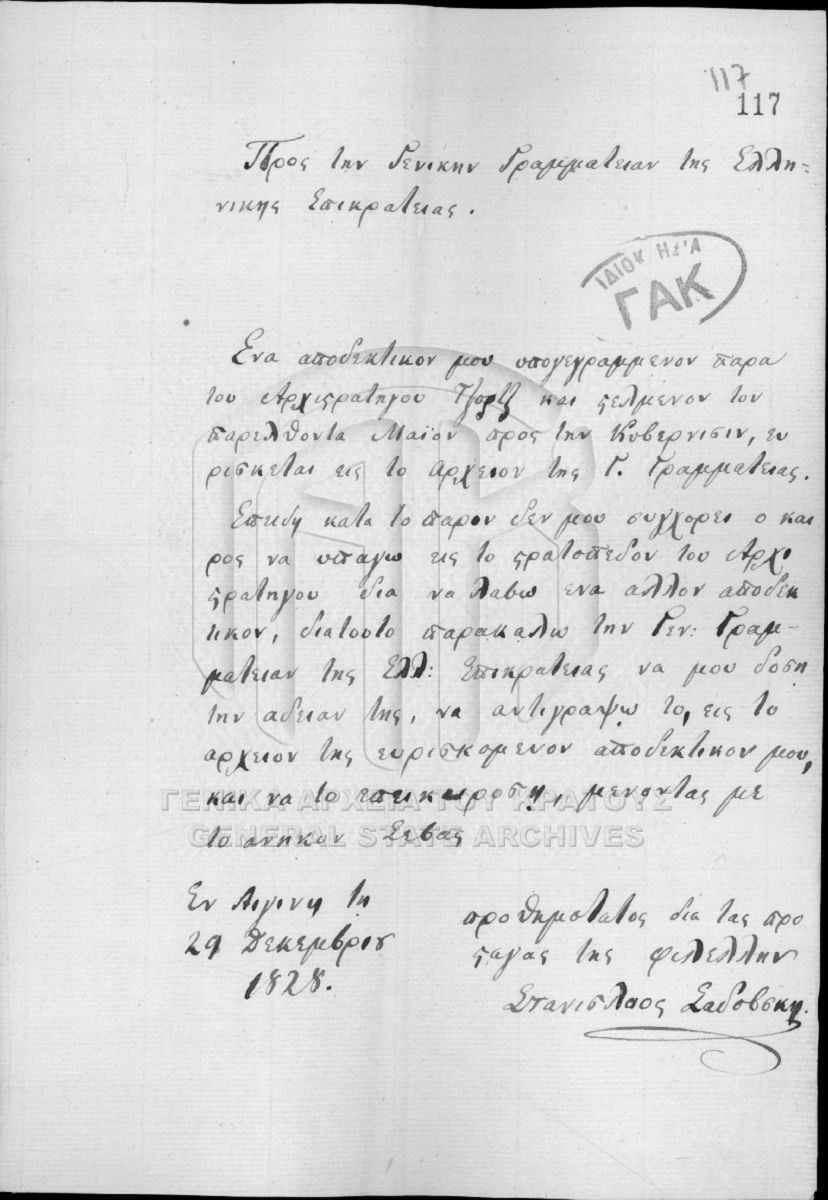 117
117
Προς την Γενικην Γραμματειαν της Ελλη=
νικης Επικρατειας.
ΙΔΙΟΚ ΗΣ'Α
ΓΑΚ
Ενα αποδεκτικον μου υπογεγραμμενον παρα
του Αρχιςρατηγου Τζορτζ και ςελμενον τον
παρελθοντα Μαϊον προς την Κυβερνισιν, ευ
ρισκεται εις το αρχειον της Γ. Γραμματειας.
Επειδη κατα το παρον δεν μου συγχορει ο και
ρος να υπαγω εις το ςρατοπεδον του Αρχι
ςρατηγου δια να λαβω ενα αλλον αποδεκ
τικον, διατουτο παρακαλω την Γεν: Γραμ-
ματειαν της Ελλ: Επικρατειας να μου δοση
την αδειαν της, να αντιγραψω το, εις το
αρχειον της ευρισκομενον αποδεκτικον μου,
και να το επεικυροση, μενοντας με
το ανηκον Σεβας
ΓΕΝΙΚΑ ΑΡΧΕΙΑ ΤΟΥ ΚΡΑΤΟΥΣ
GENERAL STATE ARCHIVES
Εν Αιγινη τη
29 Δεκεμβριου
1828.
προθημοτατος δια τας προ
ςαγας της φιλελλην
Στανισλαος Σαδοβσκη.